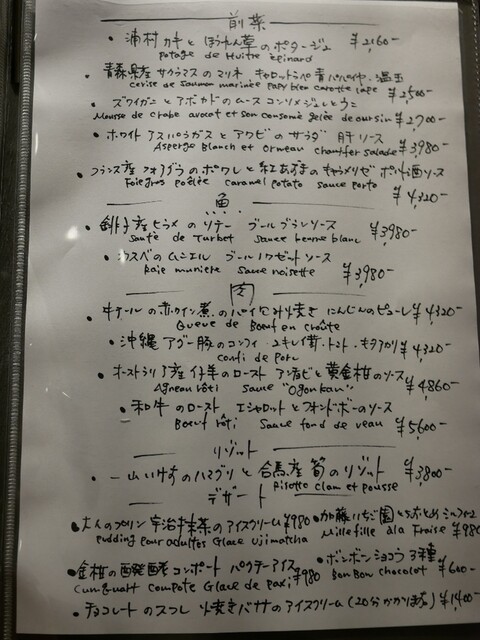 前菜
・浦村カキとほうれん草のポタージュ ¥2,160-
potage de Huitre épinard
・青森県産サクラマスのマリネ キャロットラペ 青パパイヤ・温玉
cerise de saumon marinée papy bien carotte rape ¥2,500-
・ズワイガニとアボカドのムース コンソメジュレとウニ
Mousse de crabe avocat et son consomé gelée de oursin ¥2,700-
・ホワイトアスパラガスとアワビのサラダ 肝ソース
Asperge Blanch et Ormeau chauffer salade ¥3,980-
・フランス産フォアグラのポワレと紅あずまのキャラメリゼ ポルト酒ソース
Foie gras poêlée caramel potato sauce porto ¥4,320-
魚
・銚子産ヒラメのソテー ブールブランソース
Sauté de Turbot sauce beurre blanc ¥3,980-
・カスベのムニエル ブールノワゼットソース
Raie muniere sauce noisette ¥3,980-
肉
・牛テールの赤ワイン煮のパイ包み焼き にんじんのピューレ ¥4,320-
Queue de Boeuf en croûte
・沖縄アグー豚のコンフィ・ユキレイ茸・トマト・キタアカリ ¥4,320-
confi de porc
・オーストラリア産仔羊のロースト アンチョビと黄金柑のソース
Agneau rôti sauce "Ogonkan" ¥4,860-
・和牛のロースト エシャロットとフォンドボーのソース
Boeuf rôti sauce fond de veau ¥5,600-
リゾット
・一山いけすのハマグリと合馬産筍のリゾット
Risotto clam et pousse ¥3,800-
デザート
・大人のプリン 宇治抹茶のアイスクリーム ¥980
pudding pour adultes Glace ujimatcha
・加藤いちご園とちおとめミルフィーユ
Mille fille à la Fraise ¥980
・金柑の醗酵コンポート パクチーアイス
Cumquart compote Glace de paxi ¥980
・ボンボンショコラ3種
Bon Bon chocolat ¥600-
・チョコレートのスフレ 焼きバナナのアイスクリーム (20分かかります) ¥1,400-